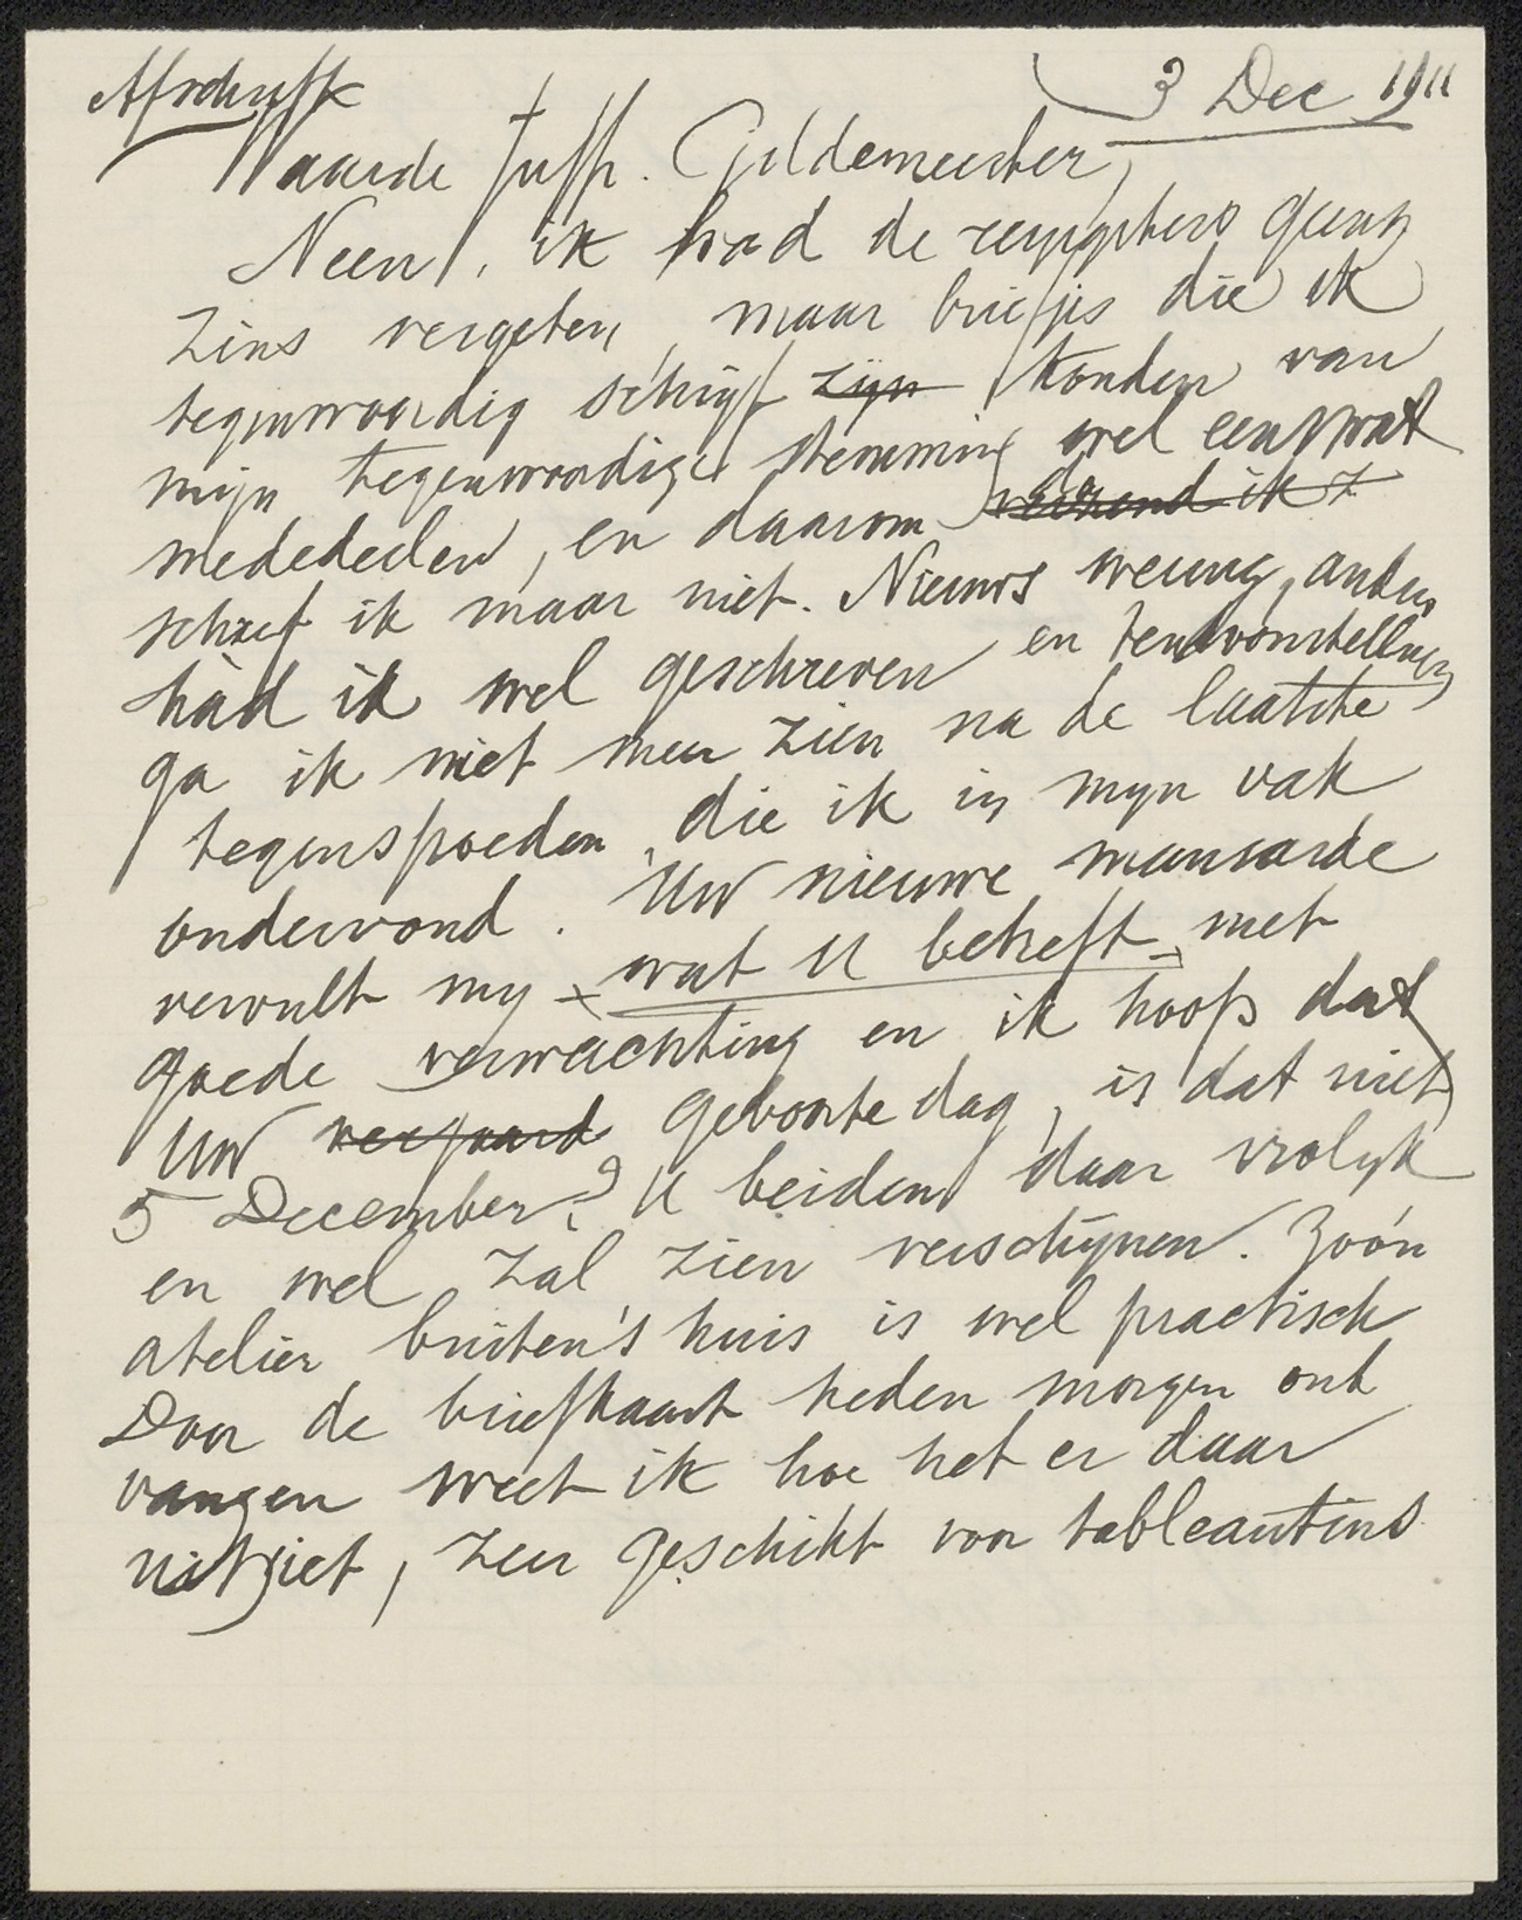 Afschrift
3 Dec 1911
Waarde Juffr. Gildemeester,
Neen, ik had de reizigsters geens
zins vergeten, maar briefjes die ik
tegenwoordig schrijf zijn konden van
mijn tegenwoordige stemming wel eens wat
mededeelen, en daarom ik
schreef ik maar niet. Nieuws weinig, anders
hàd ik wel geschreven en tentoonstellingen
ga ik niet meer zien na de laatste
tegenspoeden, die ik in mijn vak
ondervond. Uw nieuwe mansarde
vervult my - wat U betreft - met
goede verwachting en ik hoop dat
Uw verjaard geboortedag, is dat niet
5 December? U beiden daar vrolyk
en wel zal zien verschijnen. Zoó'n
atelier buiten's huis is wel practisch
Door de briefkaart heden morgen ont
vangen weet ik hoe het er daar
uitziet, zeer geschikt voor tableautins